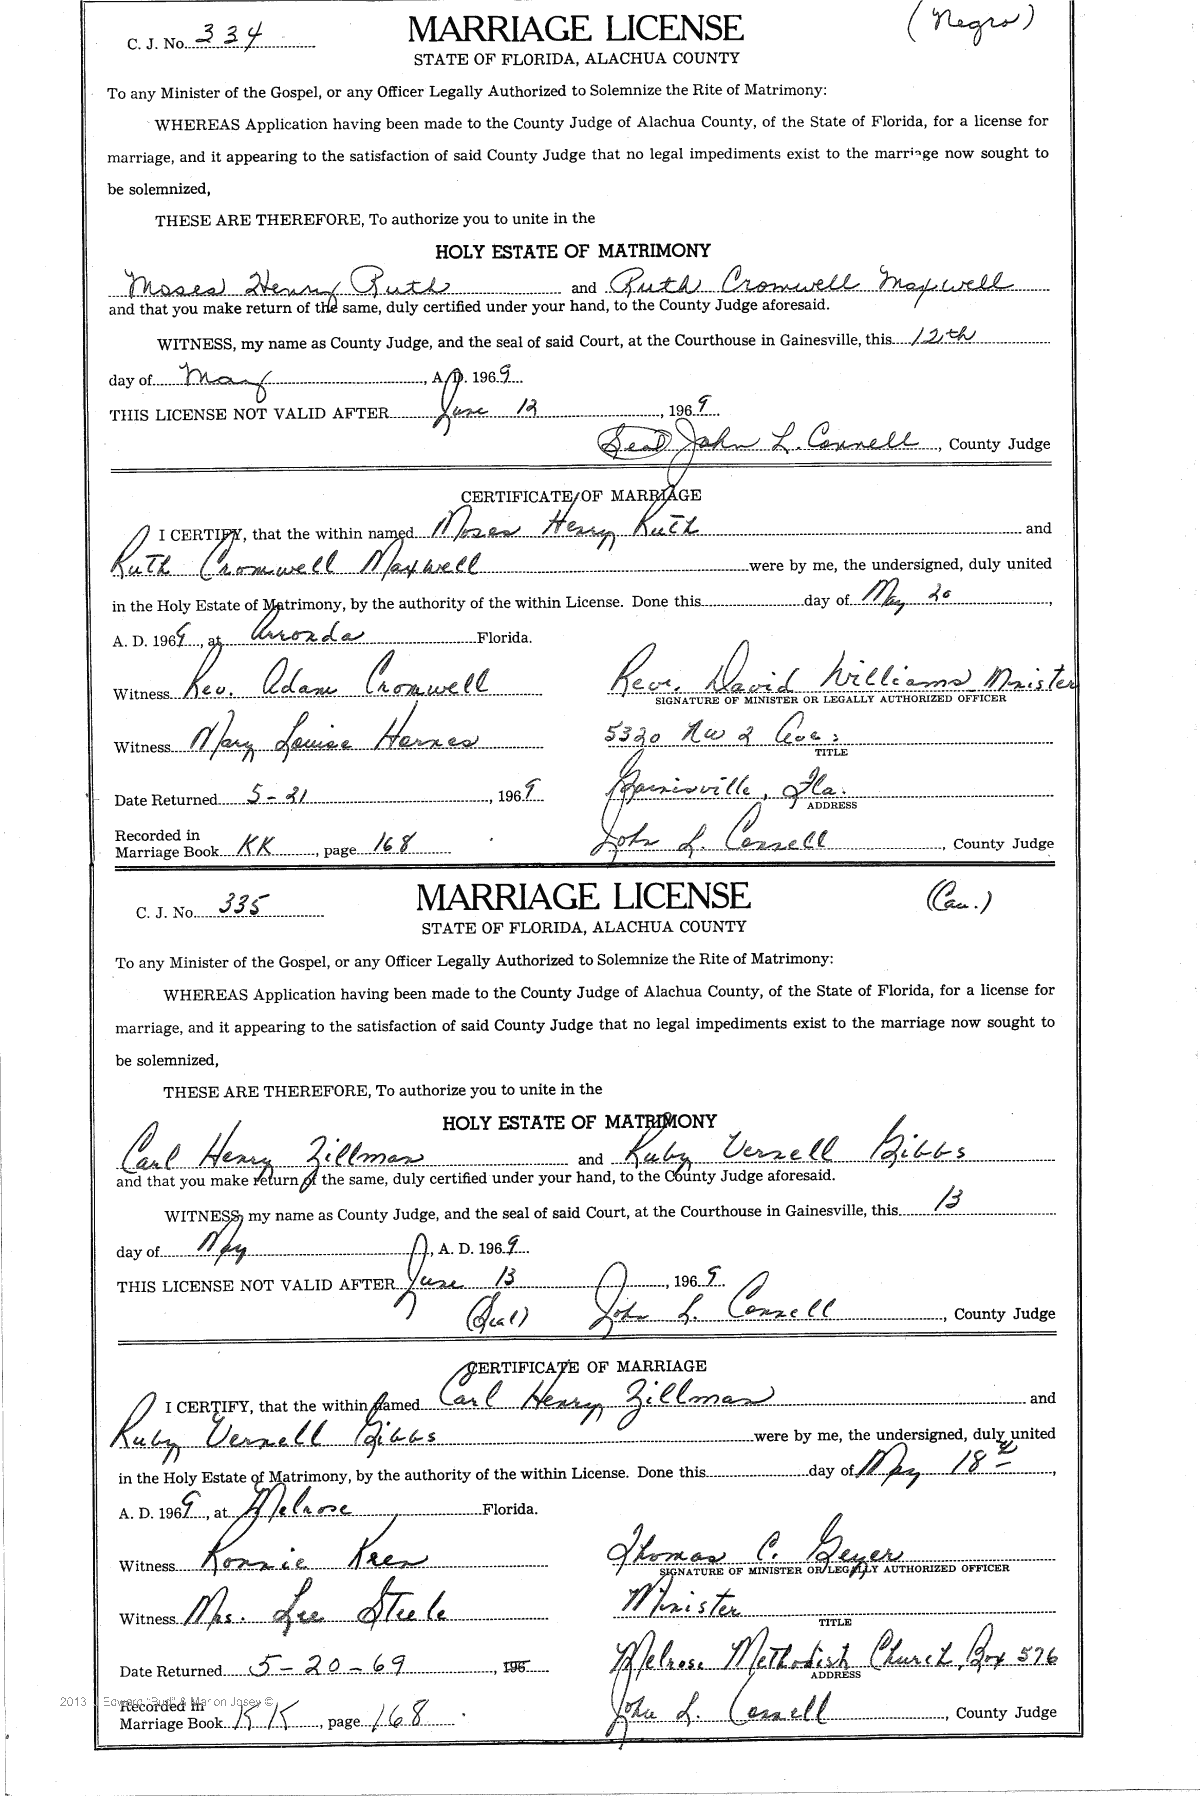 C. J. No. 334
MARRIAGE LICENSE
(Negro)
STATE OF FLORIDA, ALACHUA COUNTY
To any Minister of the Gospel, or any Officer Legally Authorized to Solemnize the Rite of Matrimony:
WHEREAS Application having been made to the County Judge of Alachua County, of the State of Florida, for a license for
marriage, and it appearing to the satisfaction of said County Judge that no legal impediments exist to the marriage now sought to
be solemnized,
THESE ARE THEREFORE, To authorize you to unite in the
HOLY ESTATE OF MATRIMONY
Moses Henry Ruth and Ruth Cromwell Maxwell
and that you make return of the same, duly certified under your hand, to the County Judge aforesaid.
WITNESS, my name as County Judge, and the seal of said Court, at the Courthouse in Gainesville, this 12th
day of May, A. D. 1969
THIS LICENSE NOT VALID AFTER June 12, 1969
(Seal) John L. Connell, County Judge
CERTIFICATE OF MARRIAGE
I CERTIFY, that the within named Moses Henry Ruth and
Ruth Cromwell Maxwell were by me, the undersigned, duly united
in the Holy Estate of Matrimony, by the authority of the within License. Done this day of May 20,
A. D. 1969, at Arronda Florida.
Witness Rev. Adam Cromwell
Reve. David Williams Minister
SIGNATURE OF MINISTER OR LEGALLY AUTHORIZED OFFICER
Witness Mary Louise Harnes
5320 NW 2 Ave.
TITLE
Date Returned 5-21, 1969
Gainisville, Fla.
ADDRESS
Recorded in
Marriage Book KK, page 168
John L. Connell, County Judge
C. J. No. 335
MARRIAGE LICENSE
(Cau.)
STATE OF FLORIDA, ALACHUA COUNTY
To any Minister of the Gospel, or any Officer Legally Authorized to Solemnize the Rite of Matrimony:
WHEREAS Application having been made to the County Judge of Alachua County, of the State of Florida, for a license for
marriage, and it appearing to the satisfaction of said County Judge that no legal impediments exist to the marriage now sought to
be solemnized,
THESE ARE THEREFORE, To authorize you to unite in the
HOLY ESTATE OF MATRIMONY
Carl Henry Zillman and Ruby Vernell Gibbs
and that you make return of the same, duly certified under your hand, to the County Judge aforesaid.
WITNESS, my name as County Judge, and the seal of said Court, at the Courthouse in Gainesville, this 13
day of May, A. D. 1969
THIS LICENSE NOT VALID AFTER June 13, 1969
(Seal) John L. Connell, County Judge
CERTIFICATE OF MARRIAGE
I CERTIFY, that the within named Carl Henry Zillman and
Ruby Vernell Gibbs were by me, the undersigned, duly united
in the Holy Estate of Matrimony, by the authority of the within License. Done this day of May 18th,
A. D. 1969, at Melrose Florida.
Witness Ronnie Kren
Thomas C. Geyer
SIGNATURE OF MINISTER OR LEGALLY AUTHORIZED OFFICER
Witness Mrs. Lee Steele
Minister
TITLE
Date Returned 5-20-69, 196
Melrose Methodist Church, Box 576
ADDRESS
2013 Edward "Bud" & Marion Josey ©
Recorded in
Marriage Book KK, page 168
John L. Connell, County Judge